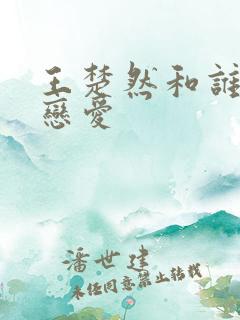 王楚然和誰
戀愛
潘世建
未经同意禁止转载